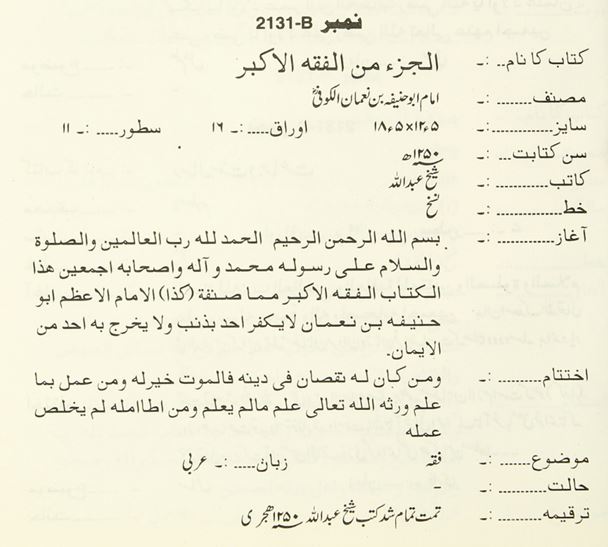 نمبر 2131-B
کتاب کا نام.. :۔ الجزء من الفقه الاکبر
مصنف........ :۔ امام ابوحنیفہ بن نعمان الکوفیؒ
سایز............ :۔ ۱۸ء۵×۱۲ء۵ اوراق..... :۔ ۱۶ سطور..... :۔ ۱۱
سن کتابت... :۔ ۱۲۵۰ھ
کاتب........... :۔ شیخ عبداللہ
خط............. :۔ نسخ
آغاز........... :۔ بسم الله الرحمن الرحیم الحمد لله رب العالمین والصلوة
والسلام علی رسوله محمد و آله واصحابه اجمعین هذا
الکتاب الفقه الاکبر مما صنفة (کذا) الامام الاعظم ابو
حنیفه بن نعمان لایکفر احد بذنب ولا یخرج به احد من
الایمان.
اختتام........ :۔ ومن کان له نقصان فی دینه فالموت خیرله ومن عمل بما
علم ورثه الله تعالی علم مالم یعلم ومن اطاامله لم یخلص
عمله
موضوع...... :۔ فقہ زبان..... :۔ عربی
حالت.......... :۔ -
ترقیمه........ :۔ تمت تمام شد کتب شیخ عبداللہ ۱۲۵۰ہجری